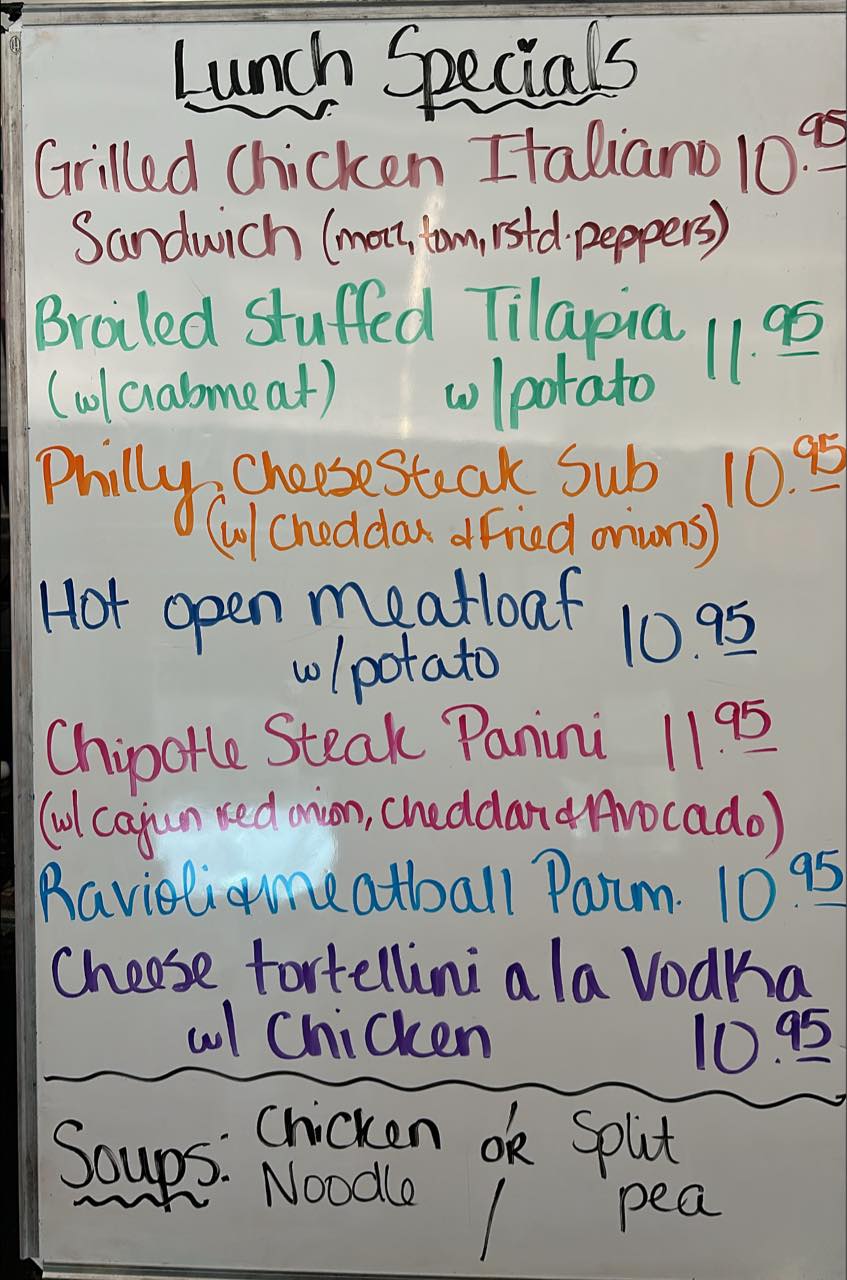 Lunch Specials
Grilled Chicken Italiano 10.95
Sandwich (mozz, tom, rstd. peppers)
Broiled Stuffed Tilapia 11.95
(w/ crabmeat) w/potato
Philly CheeseSteak Sub 10.95
(w/ Cheddar & Fried onions)
Hot open meatloaf 10.95
w/potato
Chipotle Steak Panini 11.95
(w/ cajun red onion, Cheddar & Avocado)
Ravioli & meatball Parm. 10.95
Cheese tortellini a la Vodka
w/ Chicken 10.95
Soups: Chicken Noodle / OR Split pea